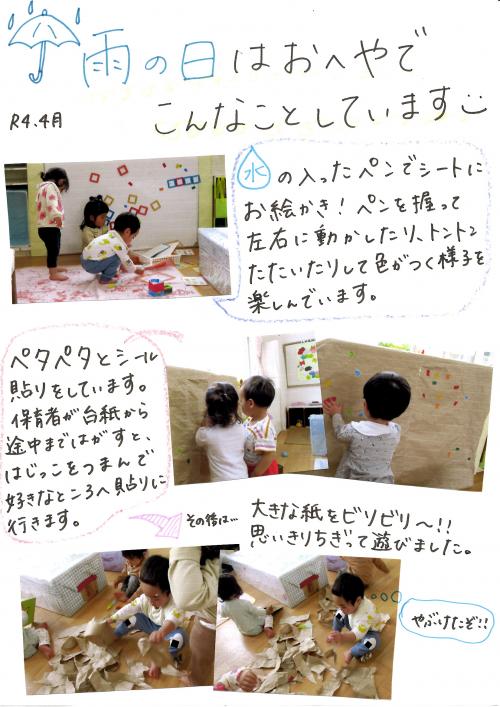 雨の日はおへやで
こんなことしています
R4.4月
水の入ったペンでシートに
お絵かき！ペンを握って
左右に動かしたり、トントン
たたいたりして色がつく様子を
楽しんでいます。
ペタペタとシール
貼りをしています。
保育者が台紙から
途中まではがすと、
はじっこをつまんで
好きなところへ貼りに
行きます。
その後は…
大きな紙をビリビリ～!!
思いきりちぎって遊びました。
やぶけたぞ!!